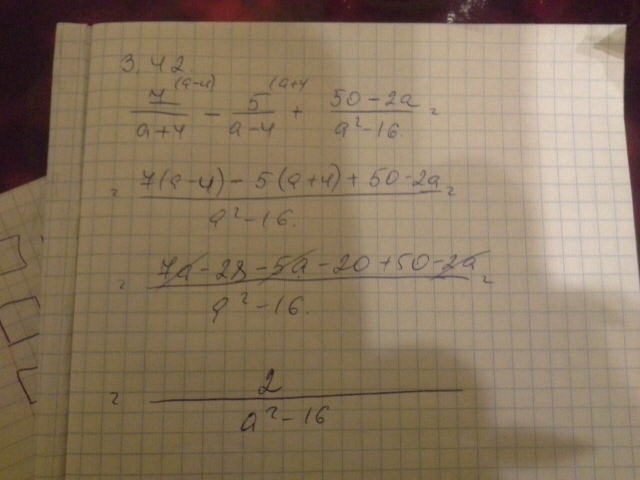 3.42
7^(a-4)/(a+4) - 5^(a+4/(a-4) + (50-2a)/(a²-16.) =
= (7(a-4) - 5(a+4) + 50-2a)/(a²-16.) =
= (7a-28-5a-20+50-2a)/(a²-16.) =
= 2/(a²-16)